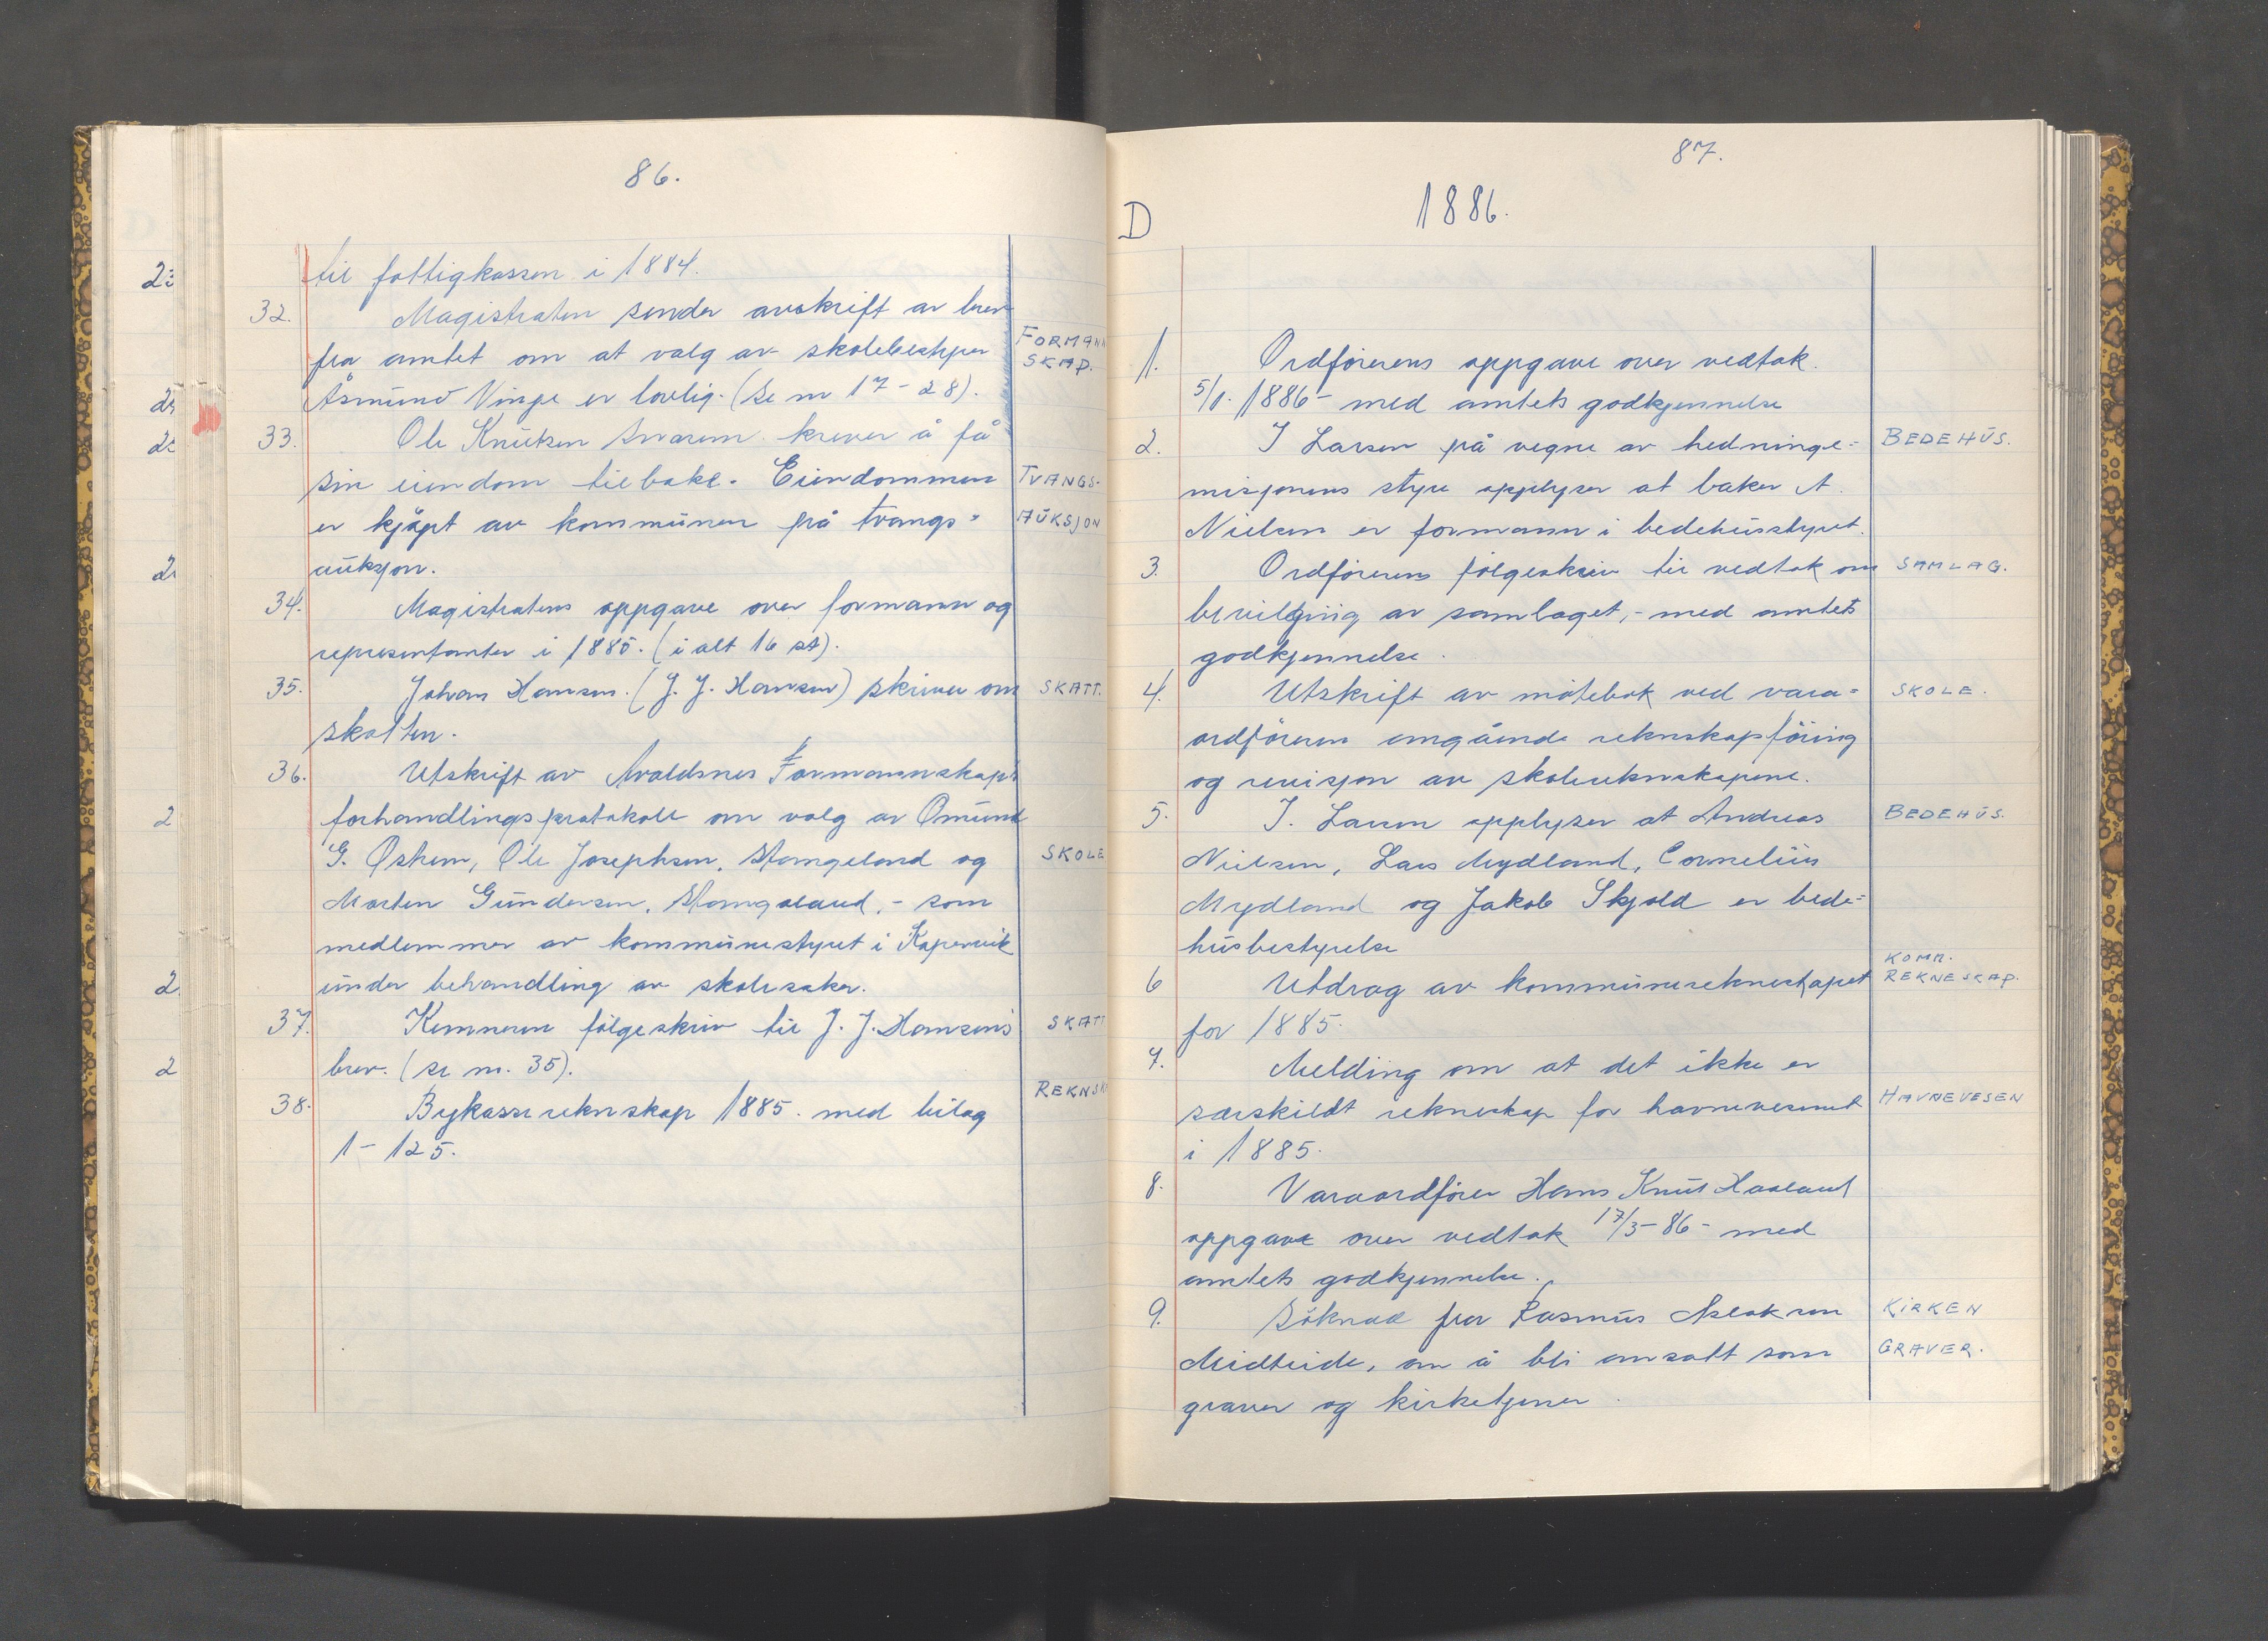 86.
til fattigkassen i 1884.
32. Magistraten sender avskrift av brev
fra amtet om at valg av skolebestyrer FORMANN
SKAP.
Åsmund Vinge er lovlig. (Se nr 17-28).
33. Ole Knutsen krever å få
sin eiendom tilbake. Eiendommen TVANGS-
er kjøpt av kommunen på tvangs= AUKSJON
auksjon.
34. Magistratens oppgave over formann og
representanter i 1885. (i alt 16 st).
35. Johan Hansen. (J. J. Hansen) skriver om SKATT.
skatten.
36. Utskrift av Avaldsnes Formannskaps
forhandlingsprotokoll om valg av Omund
G. Østhem, Ole Josephsen, Stangeland og SKOLE
Morten Gundersen, Stangeland, - som
medlemmer av kommunestyret i Kopervik
under behandling av skolesaker.
37. Kemneren følgeskriv til J. J. Hansens SKATT
brev. (se nr. 35).
38. Bykasserekneskap 1885. med bilag REKNSK
1- 125.
87.
D 1886.
1. Ordførerens oppgave over vedtak.
5/1. 1886 - med amtets godkjennelse
2. J Larsen på vegne av hedninge= BEDEHUS.
misjonens styre opplyser at baker A.
Nielsen er formann i bedehusstyret.
3. Ordførerens følgeskriv til vedtak om SAMLAG.
bevilgning av samlaget, - med amtets
godkjennelse.
4. Utskrift av møtebok ved vara= SKOLE.
ordføreren angående reknskapsføring
og revisjon av skolereknskapene.
5. J. Larsen opplyser at Andreas BEDEHUS.
Nielsen, Lars Mydland, Cornelius
Mydland og Jakob Skjold er bede=
husbestyrelse
6 Utdrag av kommunerekneskapet KOMM.
REKNESKAP.
for 1885.
7. Melding om at det ikke er
særskildt rekneskap for havnevesenet HAVNEVESEN
i 1885.
8. Varaordfører Hans Knut Haaland
oppgave over vedtak 17/3-86 - med
amtets godkjennelse.
9. Søknad fra Rasmus Aslaksen KIRKEN
Midteide, om å bli ansatt som GRAVER.
graver og kirketjener.